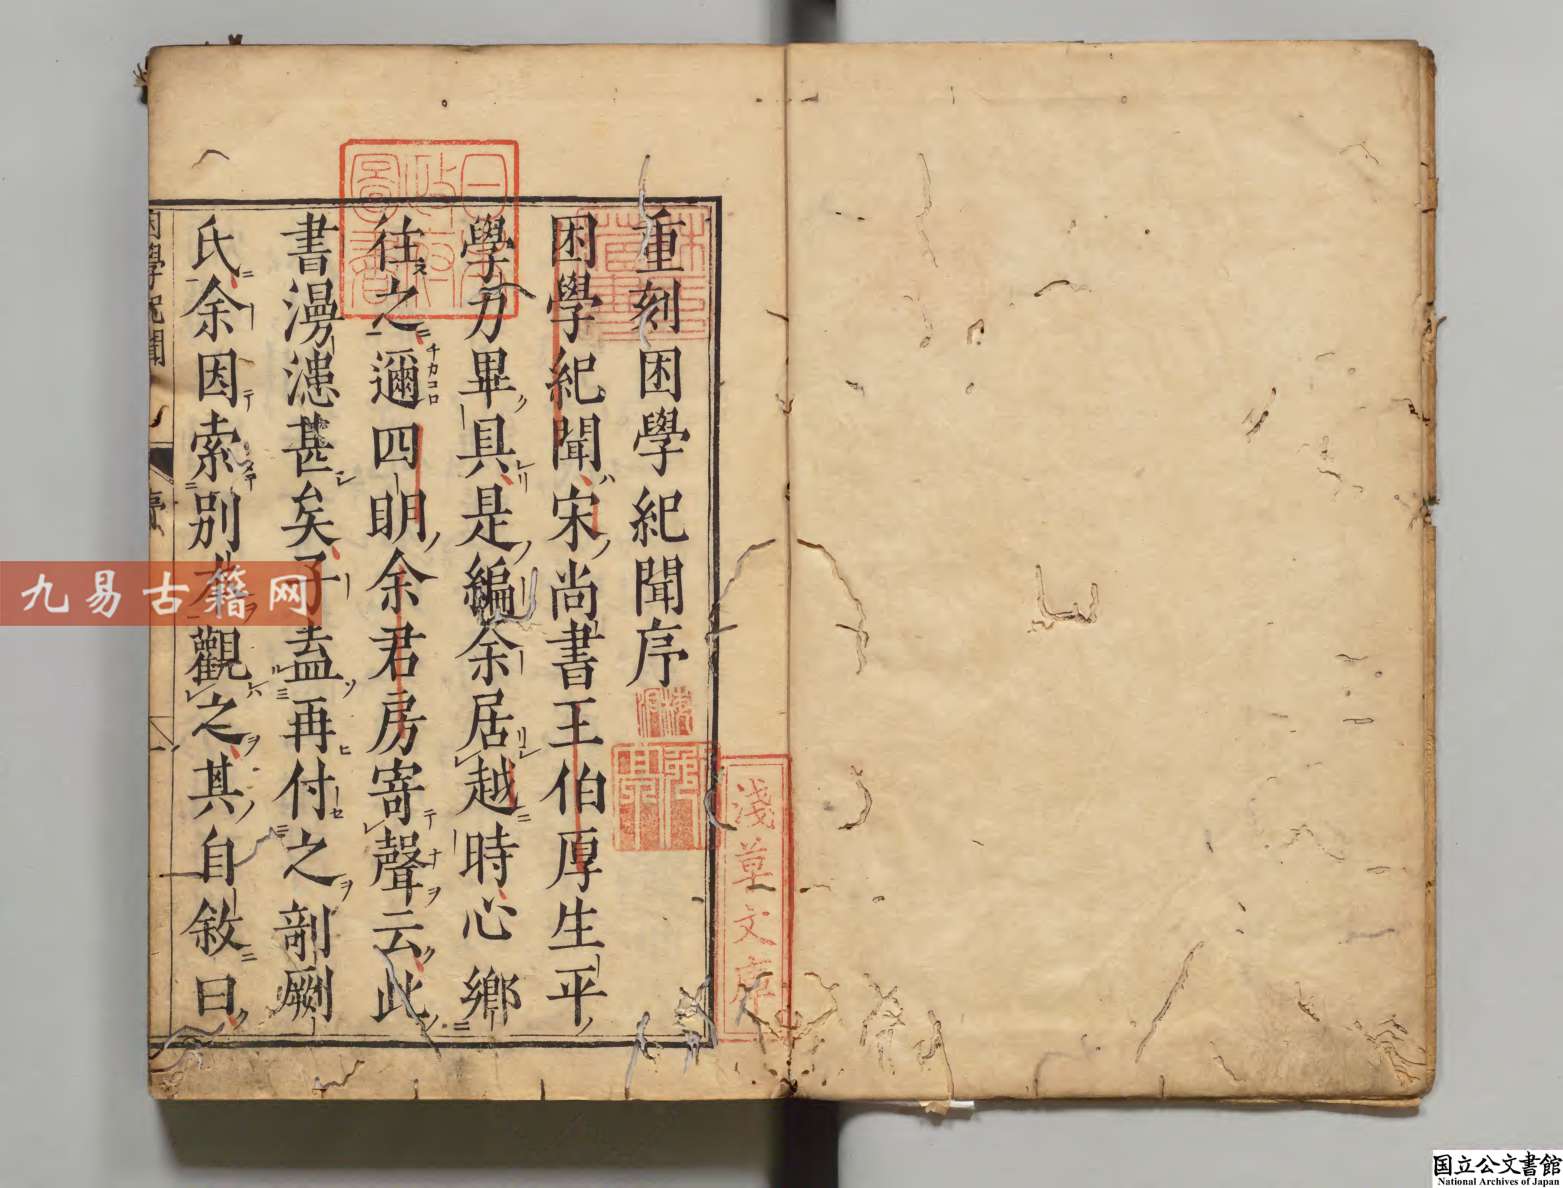 重刻困學紀聞序
困學紀聞宋尚書王伯厚生平
學力畢具是編余居越時心鄉
往之邇四明余君房寄聲云此
書漫漶甚矣子盍再付之剞劂
氏余因索別本觀之其自敘曰
淺草文庫
困學紀聞
序
九易古籍网
国立公文書館
National Archives of Japan